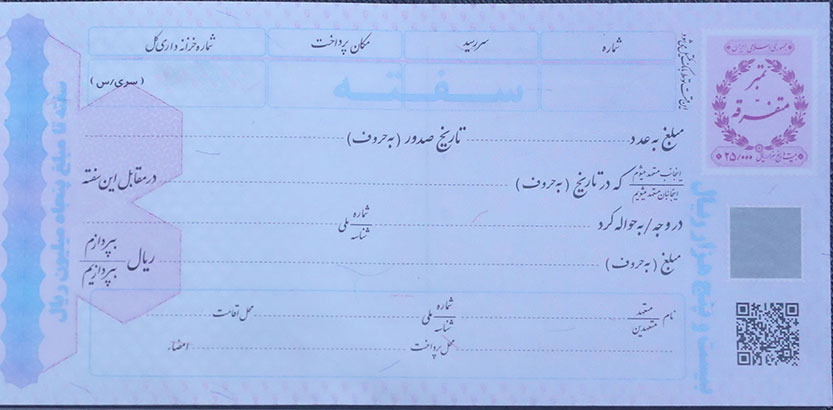 شماره سررسید مکان پرداخت شماره خزانه داری کل
سفته
(سری/س)
مبلغ به عدد تاریخ صدور (به حروف)
اینجانب متعهد میشوم
اینجانبان متعهد میشویم
که در تاریخ (به حروف) در مقابل این سفته
در وجه/به حواله کرد شماره ملی شناسه
مبلغ (به حروف) ریال بپردازم بپردازیم
نام متعهد متعهدین شماره ملی شناسه محل اقامت
محل پرداخت امضاء
جمهوری اسلامی ایران
تمبر
متفرقه
۲۵/۰۰۰
بیست و پنج هزار ریال
سفته تا مبلغ پنجاه میلیون ریال